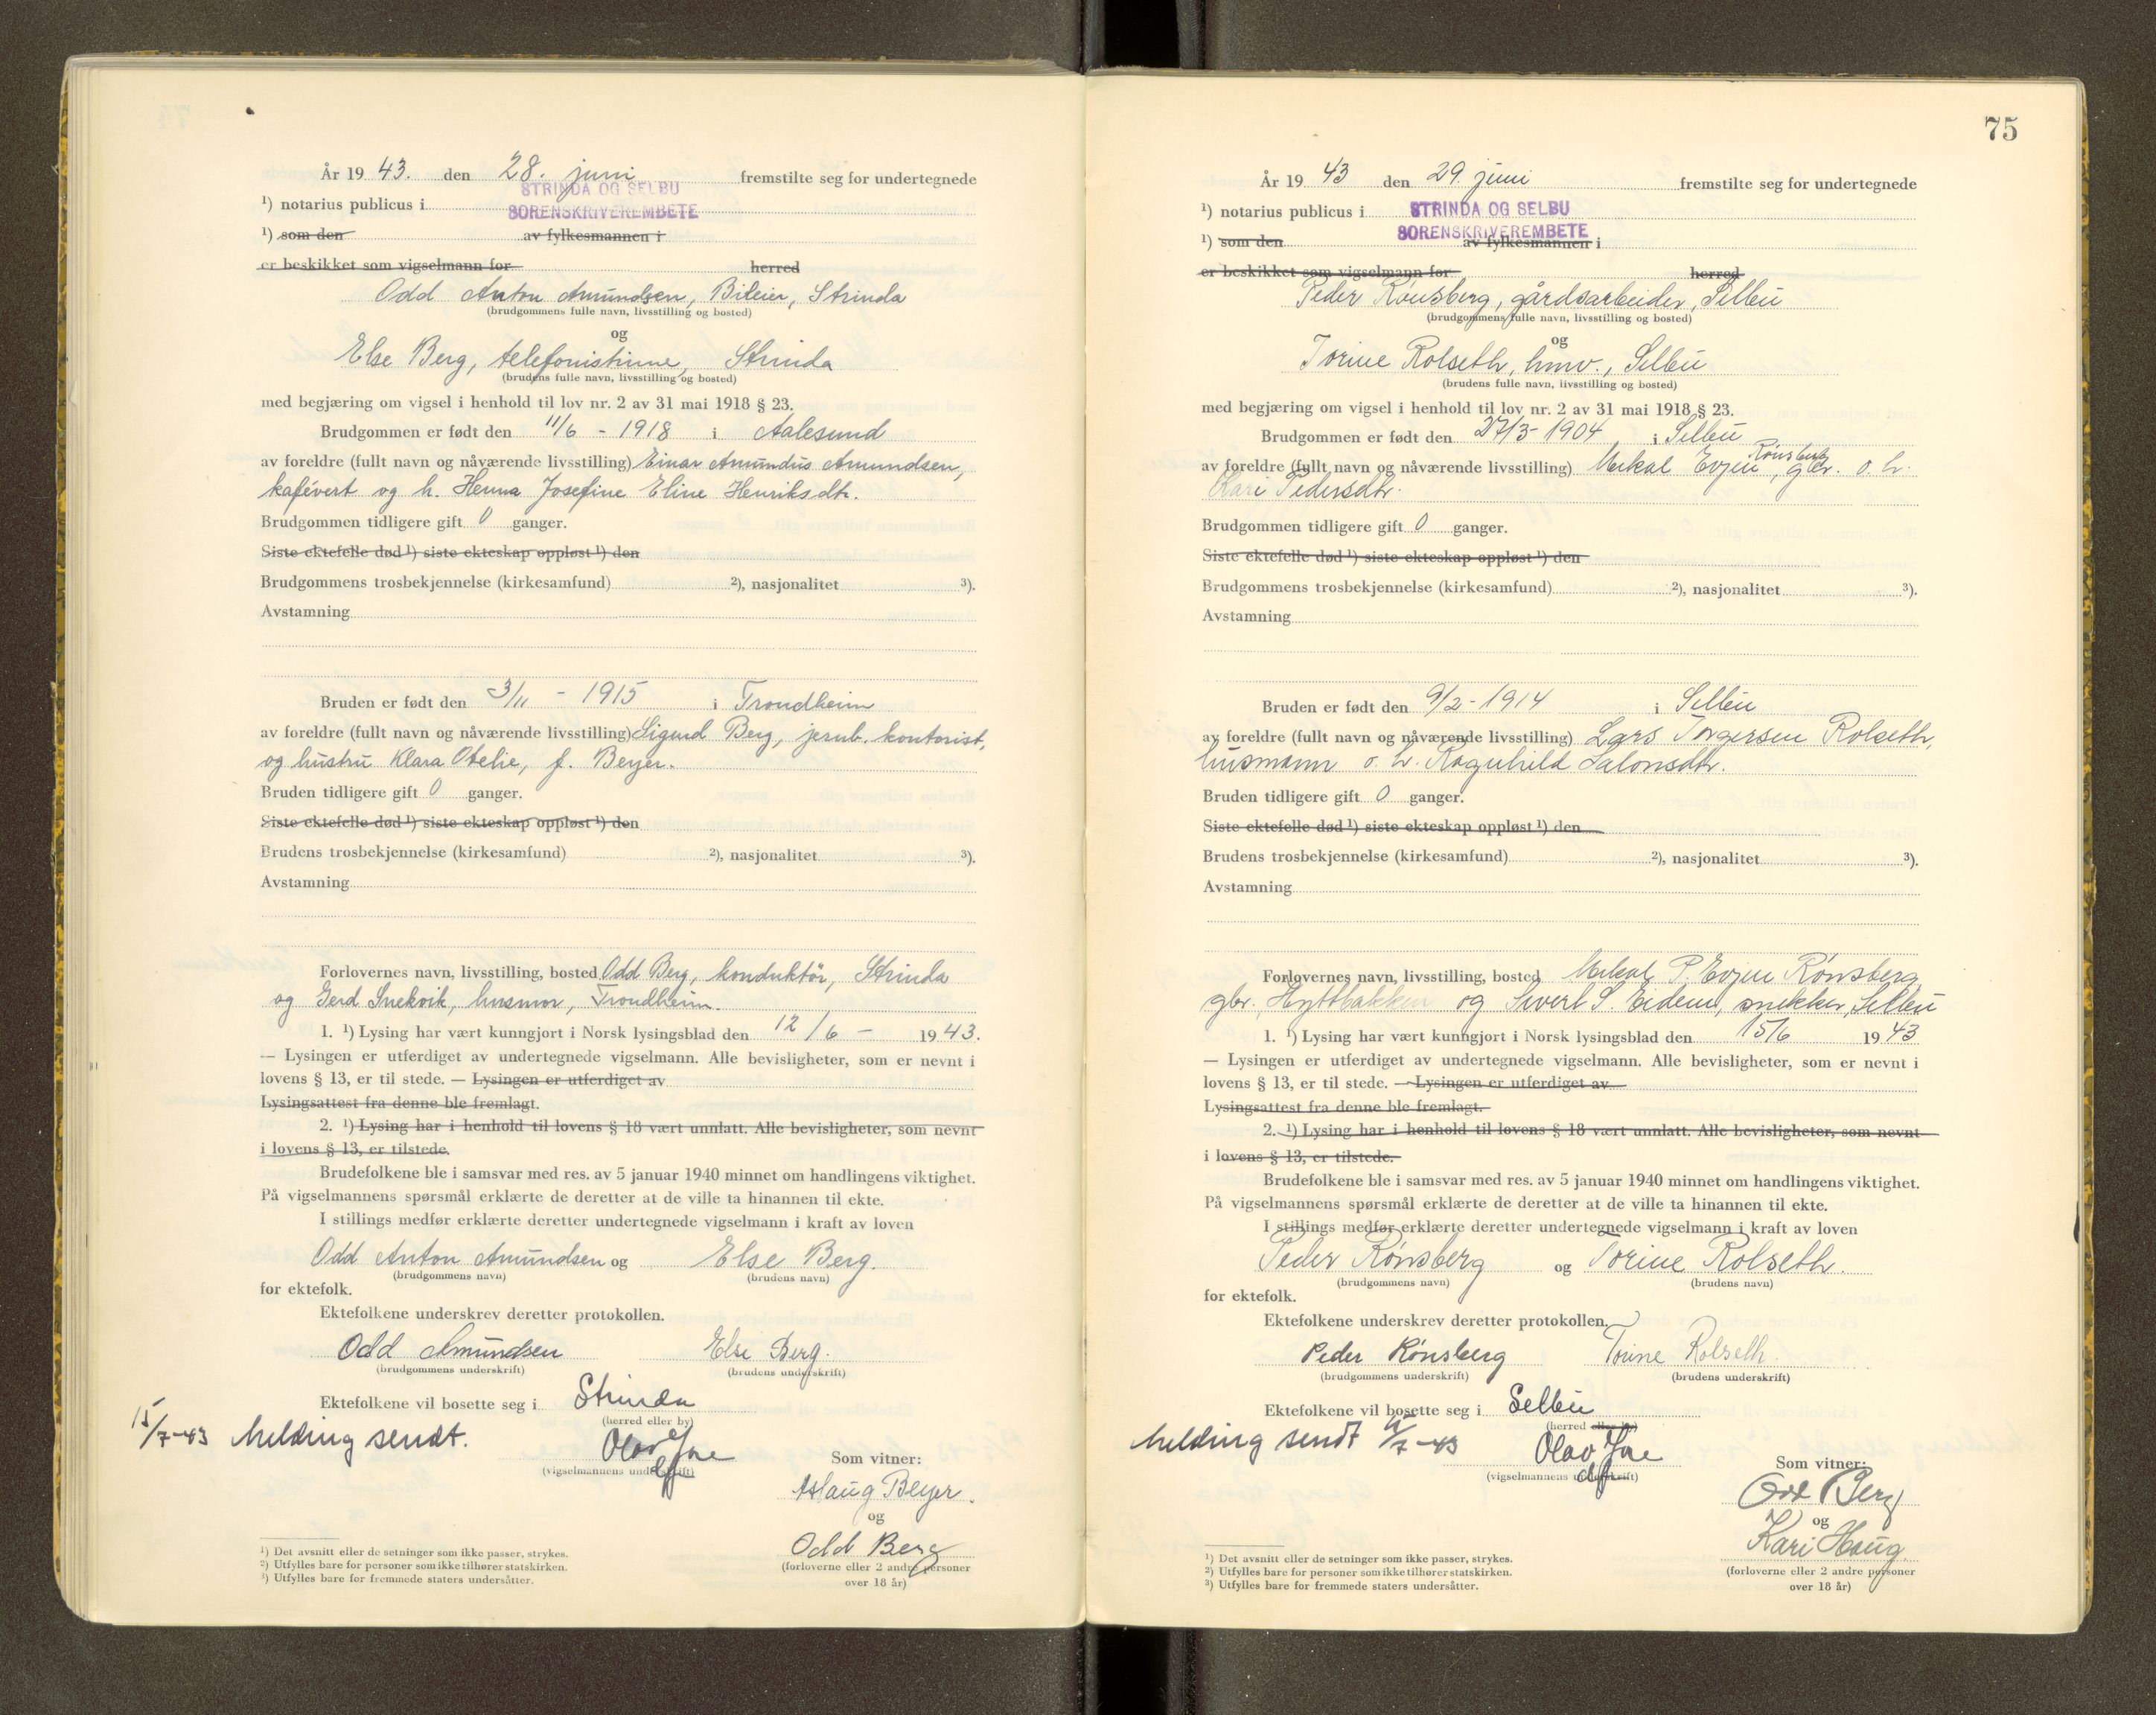 År 19 43. den 28. juni fremstilte seg for undertegnede
¹) notarius publicus i STRINDA OG SELBU
SORENSKRIVEREMBETE
¹) som den av fylkesmannen i
er beskikket som vigselmann for herred
Odd Anton Amundsen, Bileier, Strinda
(brudgommens fulle navn, livsstilling og bosted)
og
Else Berg, telefonistinne, Strinda
(brudens fulle navn, livsstilling og bosted)
med begjæring om vigsel i henhold til lov nr. 2 av 31 mai 1918 § 23.
Brudgommen er født den 11/6 - 1918 i Aalesund
av foreldre (fullt navn og nåværende livsstilling) Einar Amundus Amundsen,
kafévert og h. Henna Josefine Eline Henriksdtr.
Brudgommen tidligere gift 0 ganger.
Siste ektefelle død ¹) siste ekteskap oppløst ¹) den
Brudgommens trosbekjennelse (kirkesamfund) ²), nasjonalitet ³).
Avstamning
Bruden er født den 3/11 - 1915 i Trondheim
av foreldre (fullt navn og nåværende livsstilling) Sigurd Berg, jernb. kontorist,
og hustru Klara Otelie, f. Beyer.
Bruden tidligere gift 0 ganger.
Siste ektefelle død ¹) siste ekteskap oppløst ¹) den
Brudens trosbekjennelse (kirkesamfund) ²), nasjonalitet ³).
Avstamning
Forlovernes navn, livsstilling, bosted Odd Berg, konduktör, Strinda
og Gerd Snekvik, husmor, Trondheim.
1. ¹) Lysing har vært kunngjort i Norsk lysingsblad den 12/6 - 19 43.
— Lysingen er utferdiget av undertegnede vigselmann. Alle bevisligheter, som er nevnt i
lovens § 13, er til stede. — Lysingen er utferdiget av
Lysingsattest fra denne ble fremlagt.
2. ¹) Lysing har i henhold til lovens § 18 vært unnlatt. Alle bevisligheter, som nevnt
i lovens § 13, er tilstede.
Brudefolkene ble i samsvar med res. av 5 januar 1940 minnet om handlingens viktighet.
På vigselmannens spørsmål erklærte de deretter at de ville ta hinannen til ekte.
I stillings medfør erklærte deretter undertegnede vigselmann i kraft av loven
Odd Anton Amundsen og Else Berg.
(brudgommens navn) (brudens navn)
for ektefolk.
Ektefolkene underskrev deretter protokollen.
Odd Amundsen Else Berg.
(brudgommens underskrift) (brudens underskrift)
Ektefolkene vil bosette seg i Strinda
(herred eller by)
15/7-43 Melding sendt.
Olav
(vigselmannens underskrift)
Som vitner:
Aslaug Beyer.
og
Odd Berg
(forloverne eller 2 andre personer
over 18 år)
¹) Det avsnitt eller de setninger som ikke passer, strykes.
²) Utfylles bare for personer som ikke tilhører statskirken.
³) Utfylles bare for fremmede staters undersåtter.
75
År 19 43 den 29. juni fremstilte seg for undertegnede
¹) notarius publicus i STRINDA OG SELBU
SORENSKRIVEREMBETE
¹) som den av fylkesmannen i
er beskikket som vigselmann for herred
Peder Rönsberg, gårdsarbeider, Selbu
(brudgommens fulle navn, livsstilling og bosted)
og
Torine Rolseth, hmv., Selbu
(brudens fulle navn, livsstilling og bosted)
med begjæring om vigsel i henhold til lov nr. 2 av 31 mai 1918 § 23.
Brudgommen er født den 27/3 - 1904 i Selbu
av foreldre (fullt navn og nåværende livsstilling) Mikal Evjen Rönsberg, gbr. o. h.
Kari Pedersdtr.
Brudgommen tidligere gift 0 ganger.
Siste ektefelle død ¹) siste ekteskap oppløst ¹) den
Brudgommens trosbekjennelse (kirkesamfund) ²), nasjonalitet ³).
Avstamning
Bruden er født den 9/2 - 1914 i Selbu
av foreldre (fullt navn og nåværende livsstilling) Lars Torgersen Rolseth,
husmann o. h. Ragnhild Salonsdtr.
Bruden tidligere gift 0 ganger.
Siste ektefelle død ¹) siste ekteskap oppløst ¹) den
Brudens trosbekjennelse (kirkesamfund) ²), nasjonalitet ³).
Avstamning
Forlovernes navn, livsstilling, bosted Mikal P. Evjen Rönsberg,
gbr., Hyttbakken og Sivert S. Eidem, snekker, Selbu
1. ¹) Lysing har vært kunngjort i Norsk lysingsblad den 15/6 19 43
— Lysingen er utferdiget av undertegnede vigselmann. Alle bevisligheter, som er nevnt i
lovens § 13, er til stede. — Lysingen er utferdiget av
Lysingsattest fra denne ble fremlagt.
2. ¹) Lysing har i henhold til lovens § 18 vært unnlatt. Alle bevisligheter, som nevnt
i lovens § 13, er tilstede.
Brudefolkene ble i samsvar med res. av 5 januar 1940 minnet om handlingens viktighet.
På vigselmannens spørsmål erklærte de deretter at de ville ta hinannen til ekte.
I stillings medfør erklærte deretter undertegnede vigselmann i kraft av loven
Peder Rönsberg og Torine Rolseth.
(brudgommens navn) (brudens navn)
for ektefolk.
Ektefolkene underskrev deretter protokollen.
Peder Rønsberg Torine Rolseth.
(brudgommens underskrift) (brudens underskrift)
Ektefolkene vil bosette seg i Selbu
(herred eller by)
Melding sendt 15/7-43
Olav
(vigselmannens underskrift)
Som vitner:
Odd Berg
og
Kari Haug.
(forloverne eller 2 andre personer
over 18 år)
¹) Det avsnitt eller de setninger som ikke passer, strykes.
²) Utfylles bare for personer som ikke tilhører statskirken.
³) Utfylles bare for fremmede staters undersåtter.